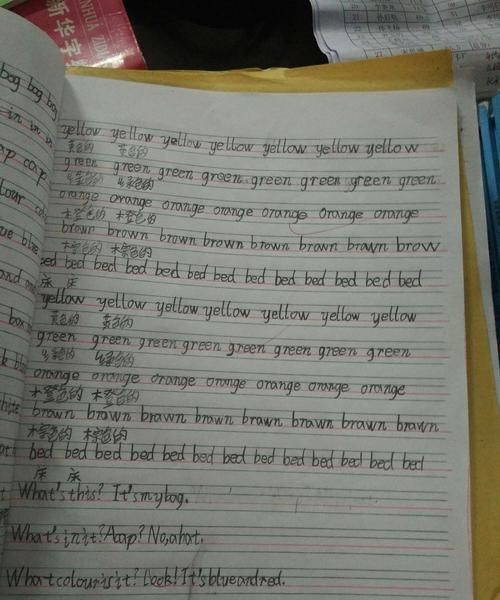 新华字
XINHUA ZIDI
bag bag bag
in in in
cap cap
yellow yellow yellow yellow yellow yellow yellow
黄色的 黄色的
green green green green green green green green
绿色的 绿色的
orange orange orange orange orange orange orange
橙色的 橙色的
brown brown brown brown brown brown brawn brow
棕色的 棕色的
bed bed bed bed bed bed bed bed bed bed bed bed bed
床 床
yellow yellow yellow yellow yellow yellow yellow
黄色的 黄色的
green green green green green green green green
绿色的 绿色的
orange orange orange orange orange orange orange
橙色的 橙色的
brawn brawn brawn brawn brawn brawn brawn brawn
棕色的 棕色的
bed bed bed bed bed bed bed bed bed bed bed bed bed
床 床
What's this? It's my bag.
What's in it? A cap? No, a hat.
What colour is it? Look! It's blue and red.